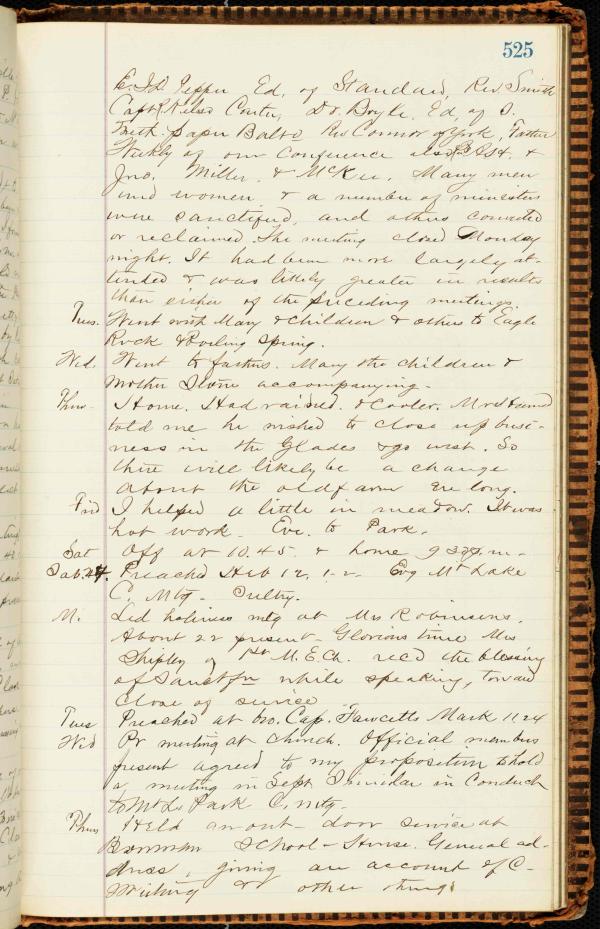 525
E. I. D. Pepper Ed, of Standard, Rev. Smith
Capt Kelso Carter, Dr. Boyle, Ed, of S.
Meth. paper Balto Rev Connor of York, Father
Weekly of our Conference also &
Jno. Miller, & McKee. Many men
and women & a number of ministers
were sanctified, and others converted
or reclaimed. The meeting closed Monday
night. It had been more largely at-
tended & was likely greater in results
than either of the preceding meetings.
Tues. Went with Mary & children & others to Eagle
Rock & Boiling Spring.
Wed. Went to fathers. Mary the children &
Mother Stone accompanying.
Thur. Home. Had rained. & Cooler. Mr.
told me he wished to close up busi-
ness in the Glades & go west. So
there will likely be a change
about the old farm ere long.
Frid I helped a little in meadow. It was
hot work. Eve. to Park.
Sat Off at 10.45. & home 9 p.m.
Sab. 24. Preached Heb 12, 1-2. Evg Mt Lake
C. Mtg. Sultry.
M. Led holiness mtg at Mrs Robinsons.
About 22 present. Glorious time Mrs
Shipley of 1st M. E. Ch. rec'd the blessing
of Sanctfn while speaking, toward
close of service
Tues Preached at bro. Cap. Fawcetts Mark 11.24
Wed Pr meeting at church. Official members
present agreed to my proposition to hold
a meeting in Sept. Similar in Conduct
to Mt L. Park C. mtg.
Thurs Held an out-door service at
School-House. General ad-
dress, giving an account of C-
Meeting & other things